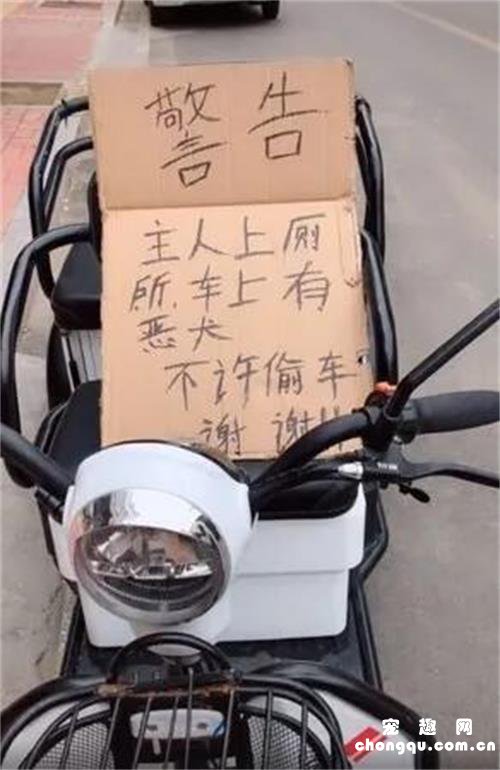 警告
主人上厕
所.车上有
恶犬
不许偷车
谢谢!!
宠趣网
chongqu.com.cn